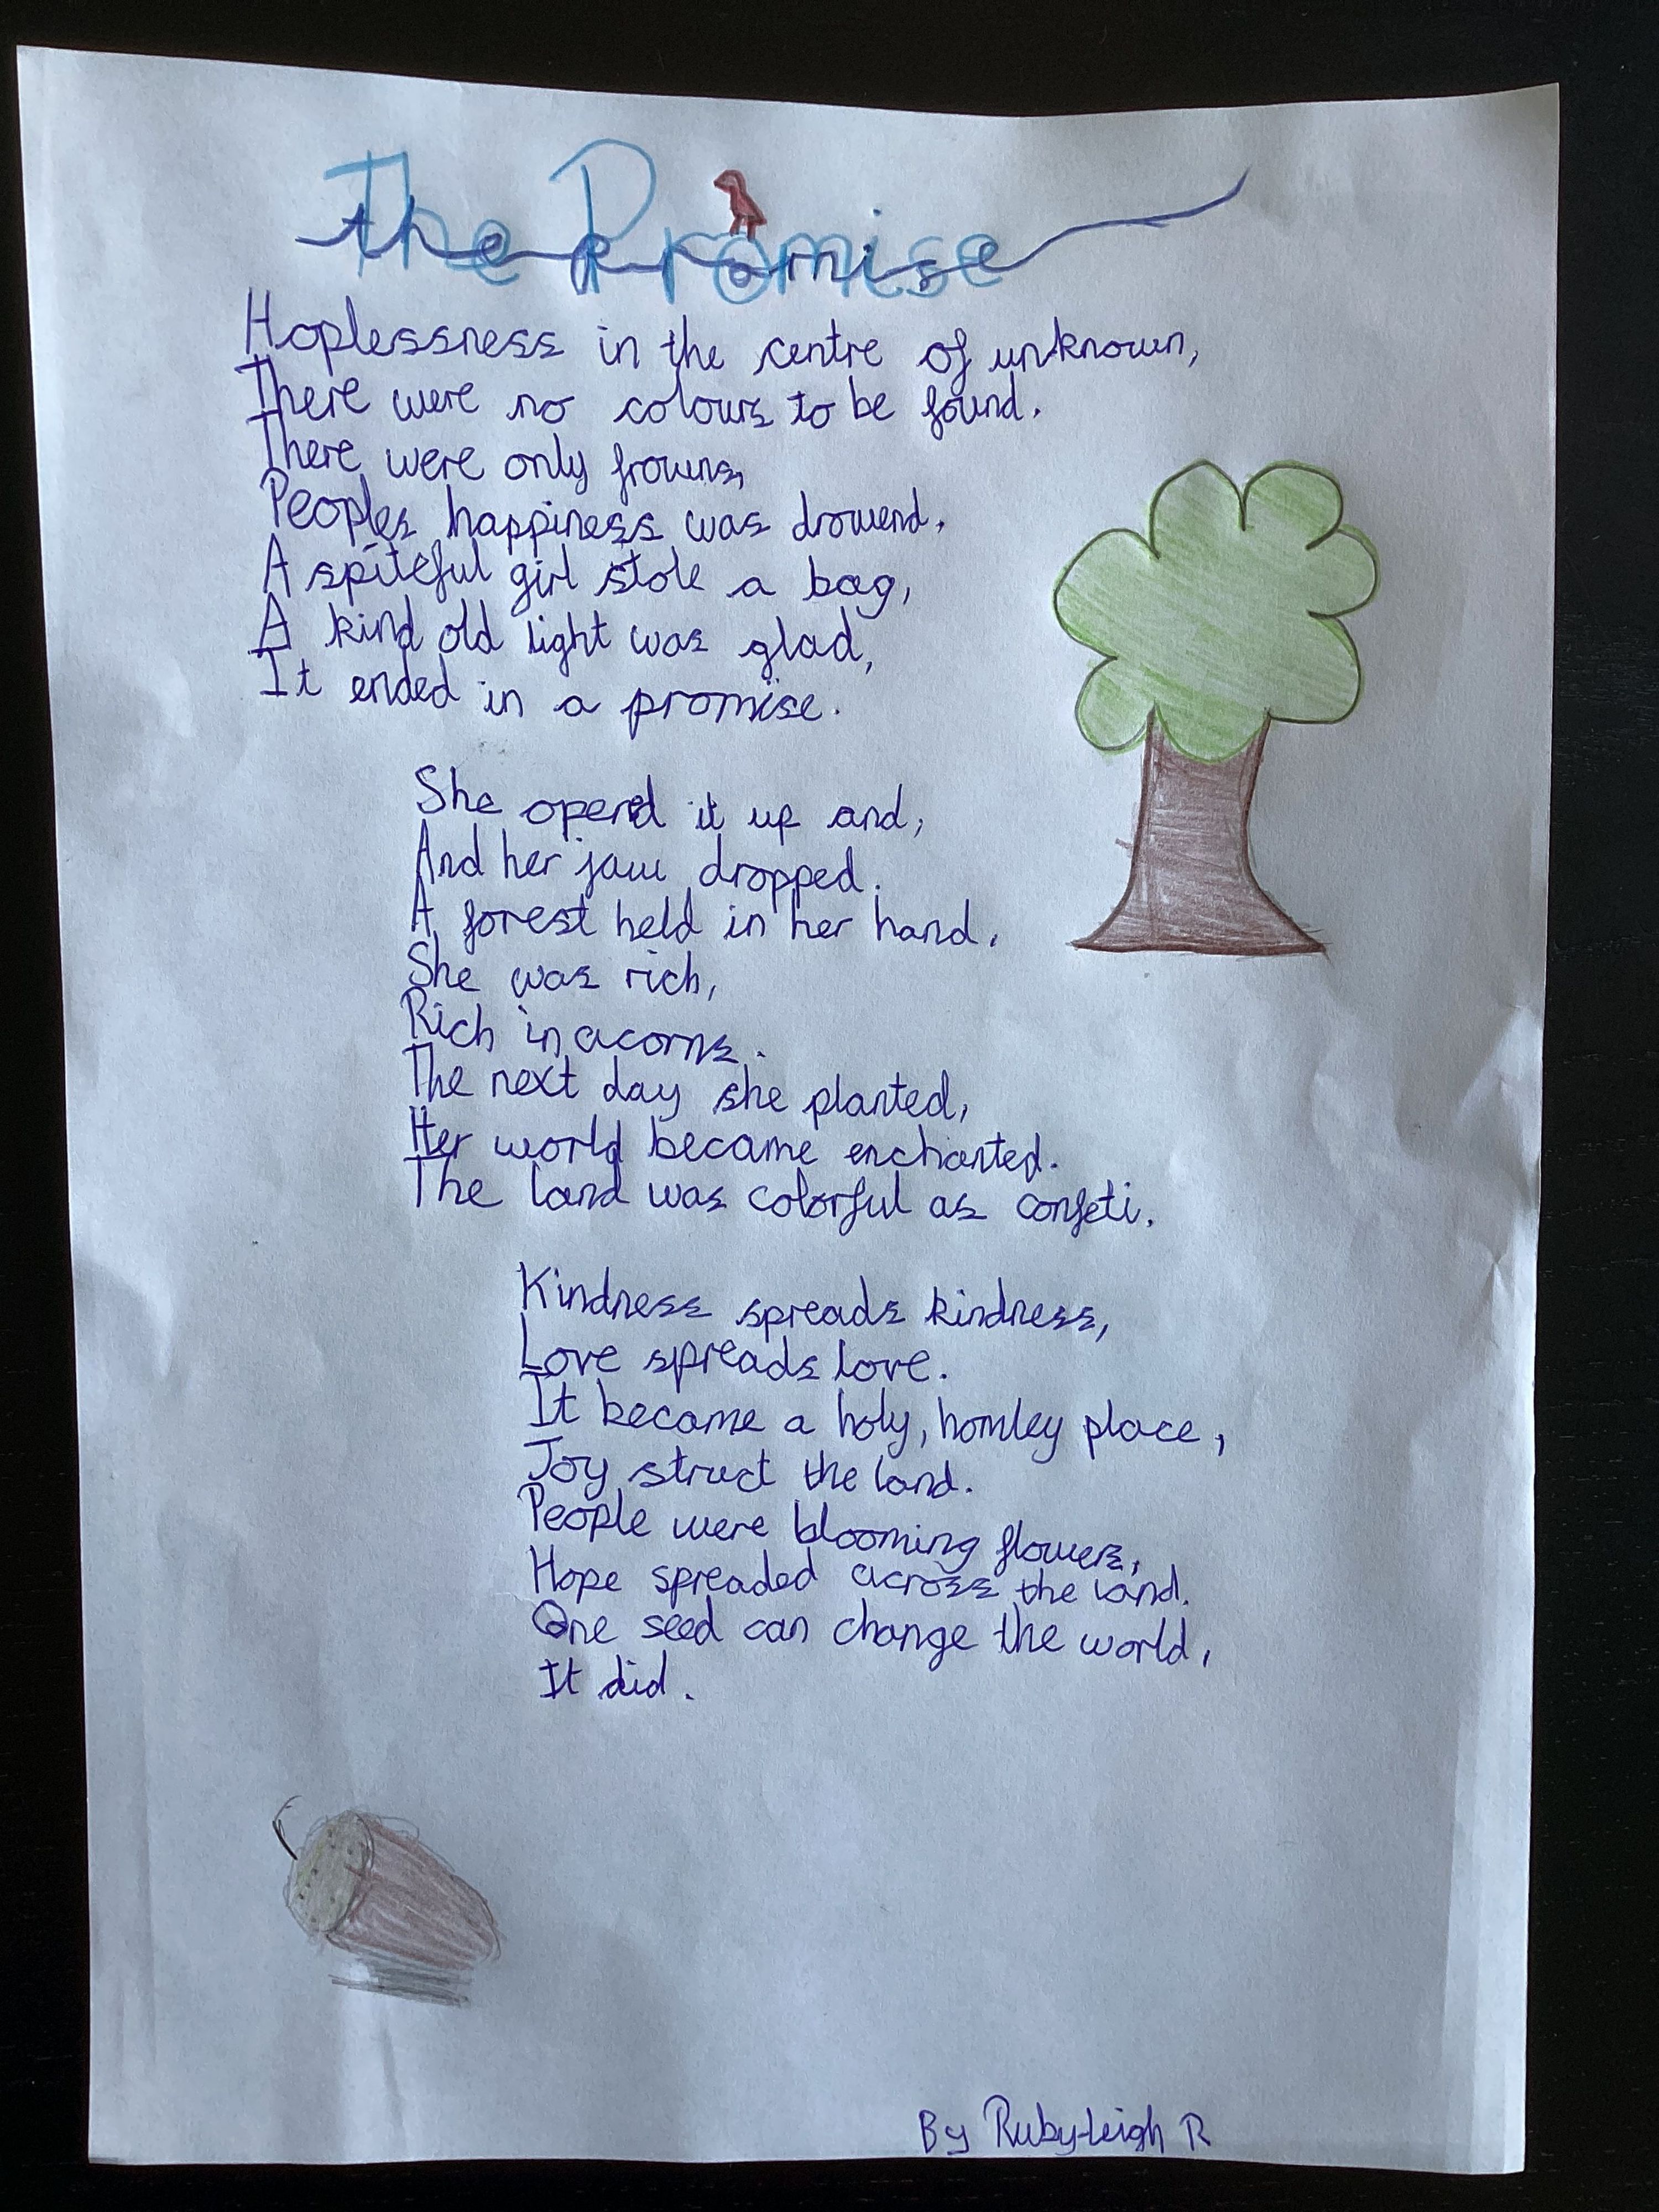 The Promise
Hoplessness in the centre of unknown,
There were no colours to be found.
There were only frowns,
Peoples happiness was drowend.
A spiteful girl stole a bag,
A kind old light was glad,
It ended in a promise.
She opend it up and,
And her jaw dropped.
A forest held in her hand.
She was rich,
Rich in acorns.
The next day she planted,
Her world became enchanted.
The land was colorful as confeti.
Kindness spreads kindness,
Love spreads love.
It became a holy, homley place,
Joy struct the land.
People were blooming flowers,
Hope spreaded across the land.
One seed can change the world,
It did.
By Ruby-Leigh R